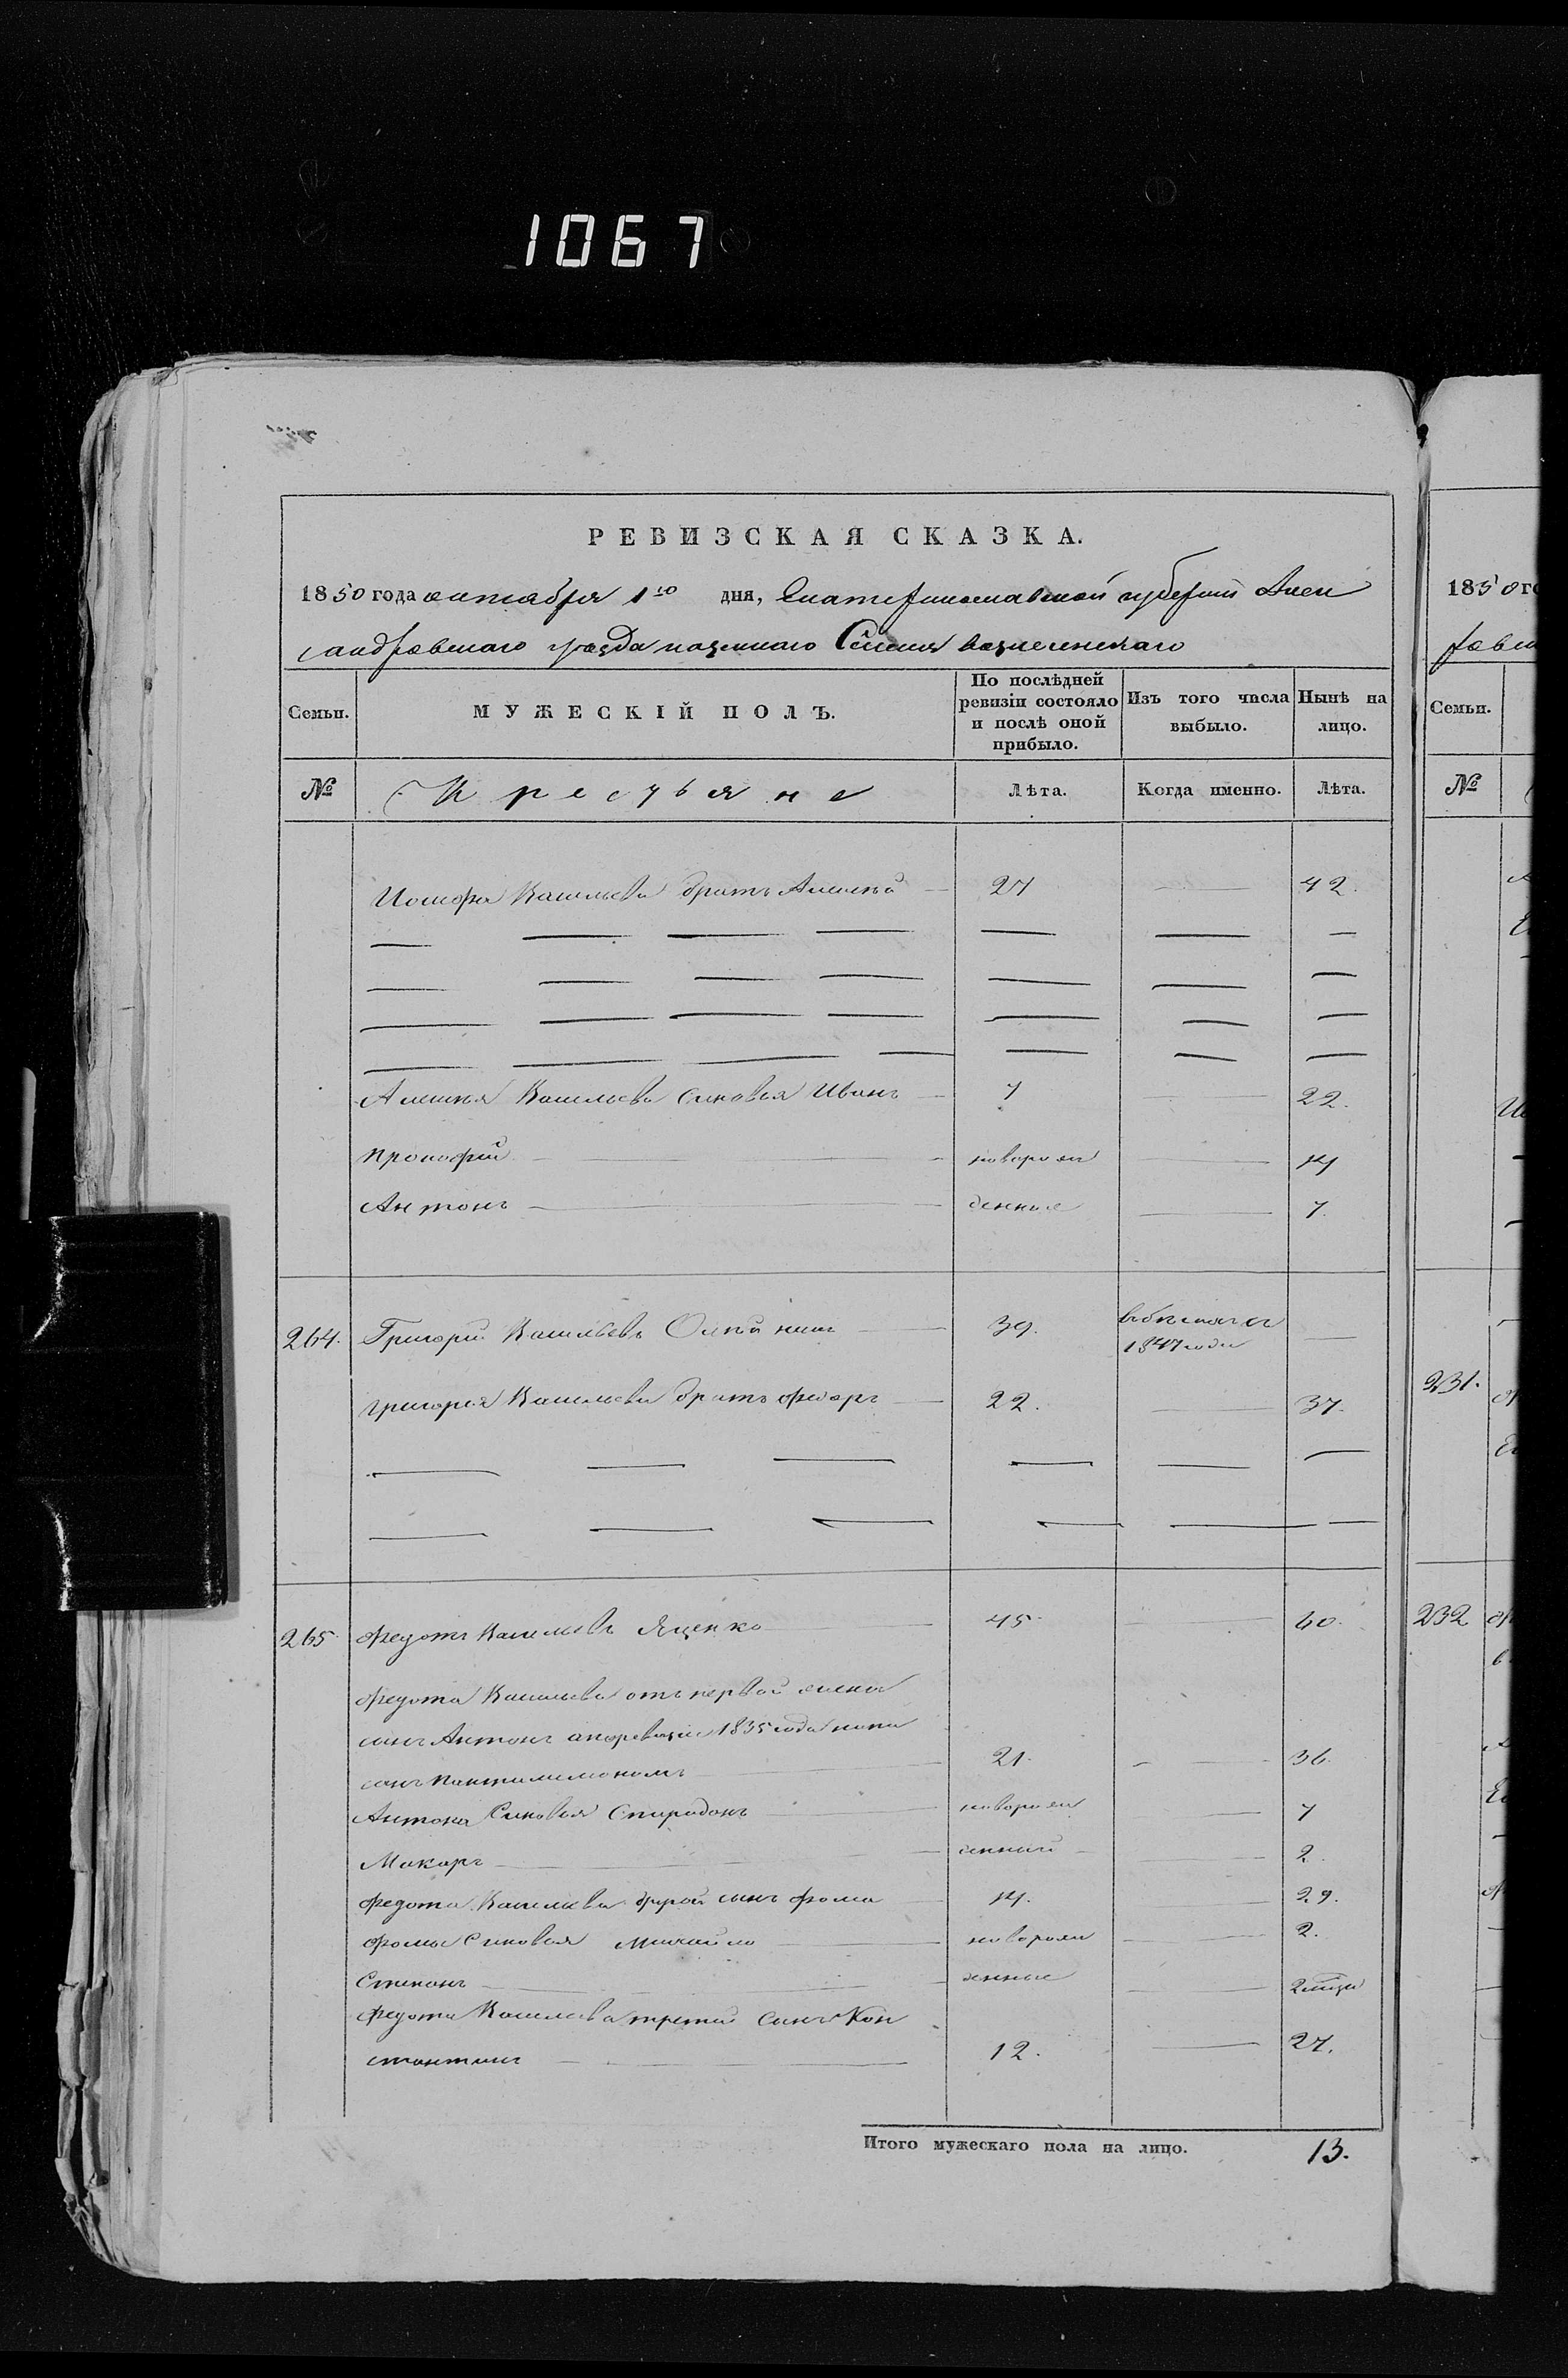 1067
РЕВИЗСКАЯ СКАЗКА.
1850 года октября 1го дня, Екатеринославской губернии Алек
сандровскаго уезда казеннаго Селения вознесенскаго
Семьи. МУЖЕСКІЙ ПОЛЪ. По послѣдней ревизіи состояло и послѣ оной прибыло. Изъ того числа выбыло. Нынѣ на лицо.
№ Крестьяне Лѣта. Когда именно. Лѣта.
Иосифа Васильева братъ Алексѣй 27 42.
Алексея Васильева синовья Иванъ 7 22.
прокофий новорож 14
Антонъ денные 7.
264. Григорий Васильевъ Олейник 39. 1847 года
григория Васильева братъ федоръ 22. 37.
265 федотъ Васильевъ Яценко 45 60.
федота Васильева отъ первой жены
синъ Антонъ а поревизии 1835 года напи
санъ пантилимономъ 21. 36.
Антона Синовья Спиридонъ новорож 7
Макаръ денный 2.
федота Васильева другой синъ фома 14. 29.
фомы Синовья михайло новорож 2.
Степанъ денные 2 мѣся
федота Васильева третий Синъ Кон
стантинъ 12. 27.
Итого мужескаго пола на лицо. 13.
1850 го
Семьи.
№
231.
232